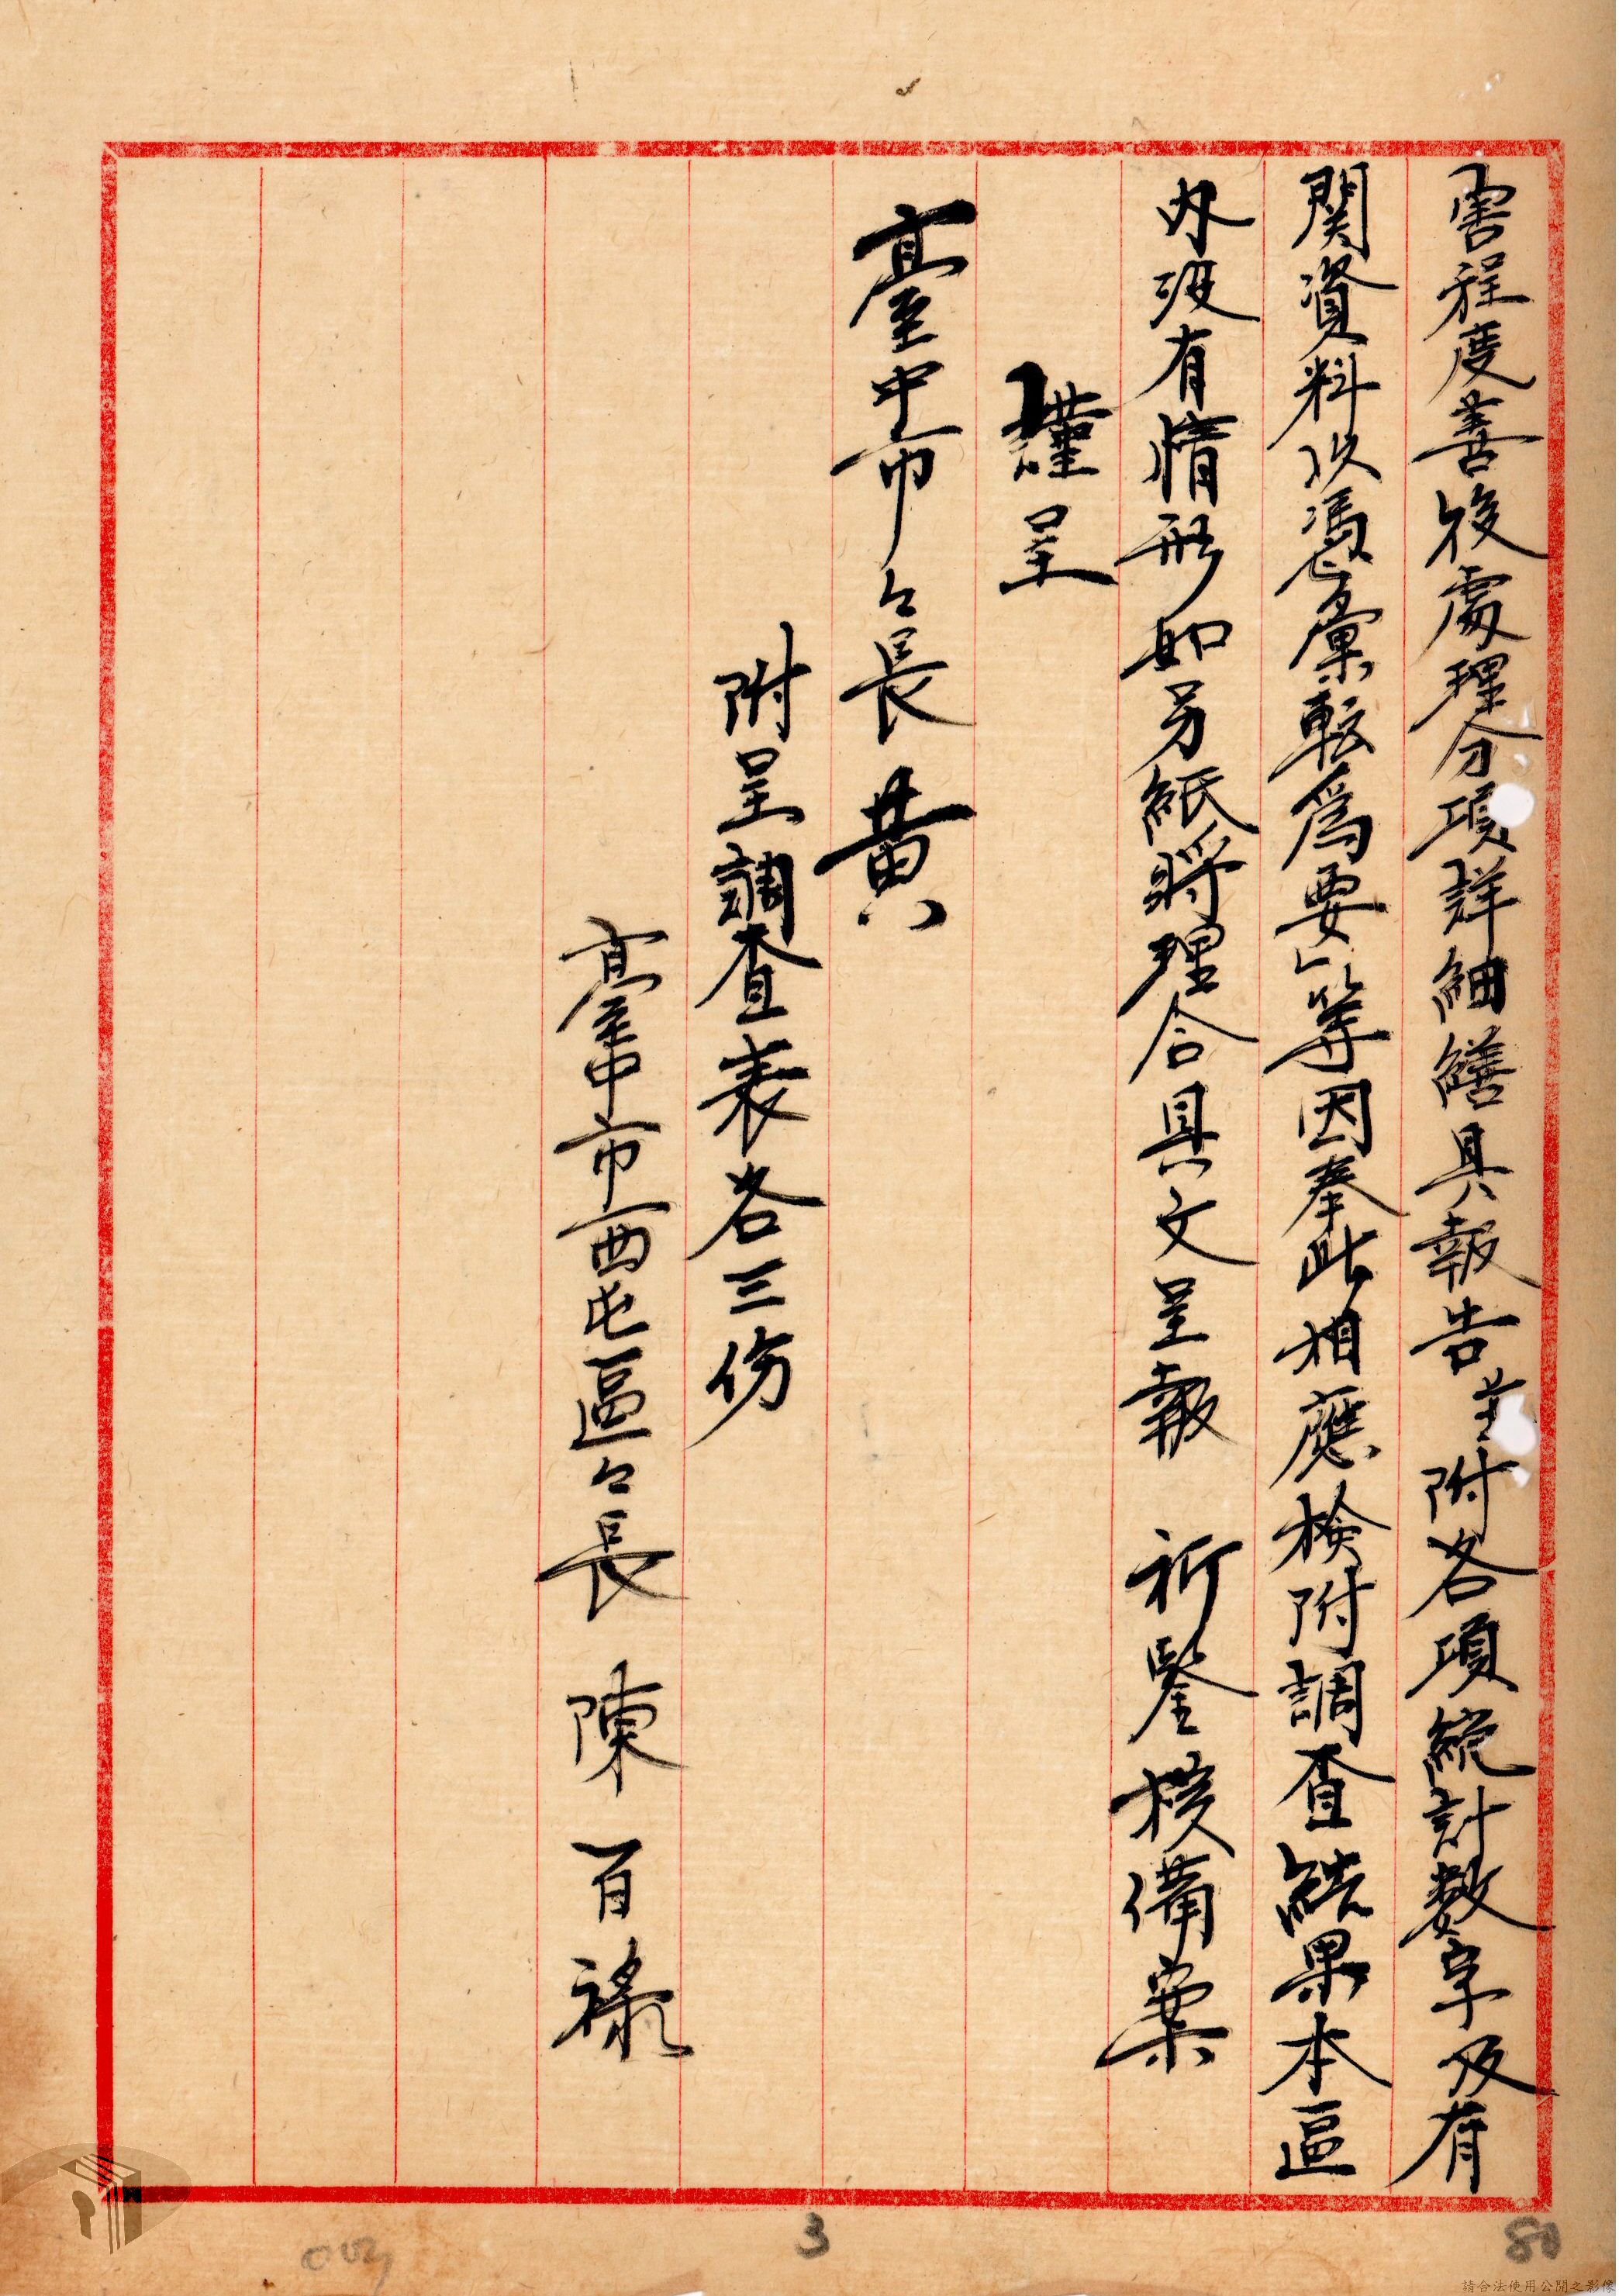 害程度善後處理分項詳細繕具報告並附各項統計數字及有
關資料以憑彙轉為要」等因奉此相應檢附調查結果本區
內沒有情形如另紙將理合具文呈報　祈鑒核備案
謹呈
臺中市々長　黃
附呈調查表各三份
臺中市西屯區々長　陳百祿
3
80
請合法使用公開之影像